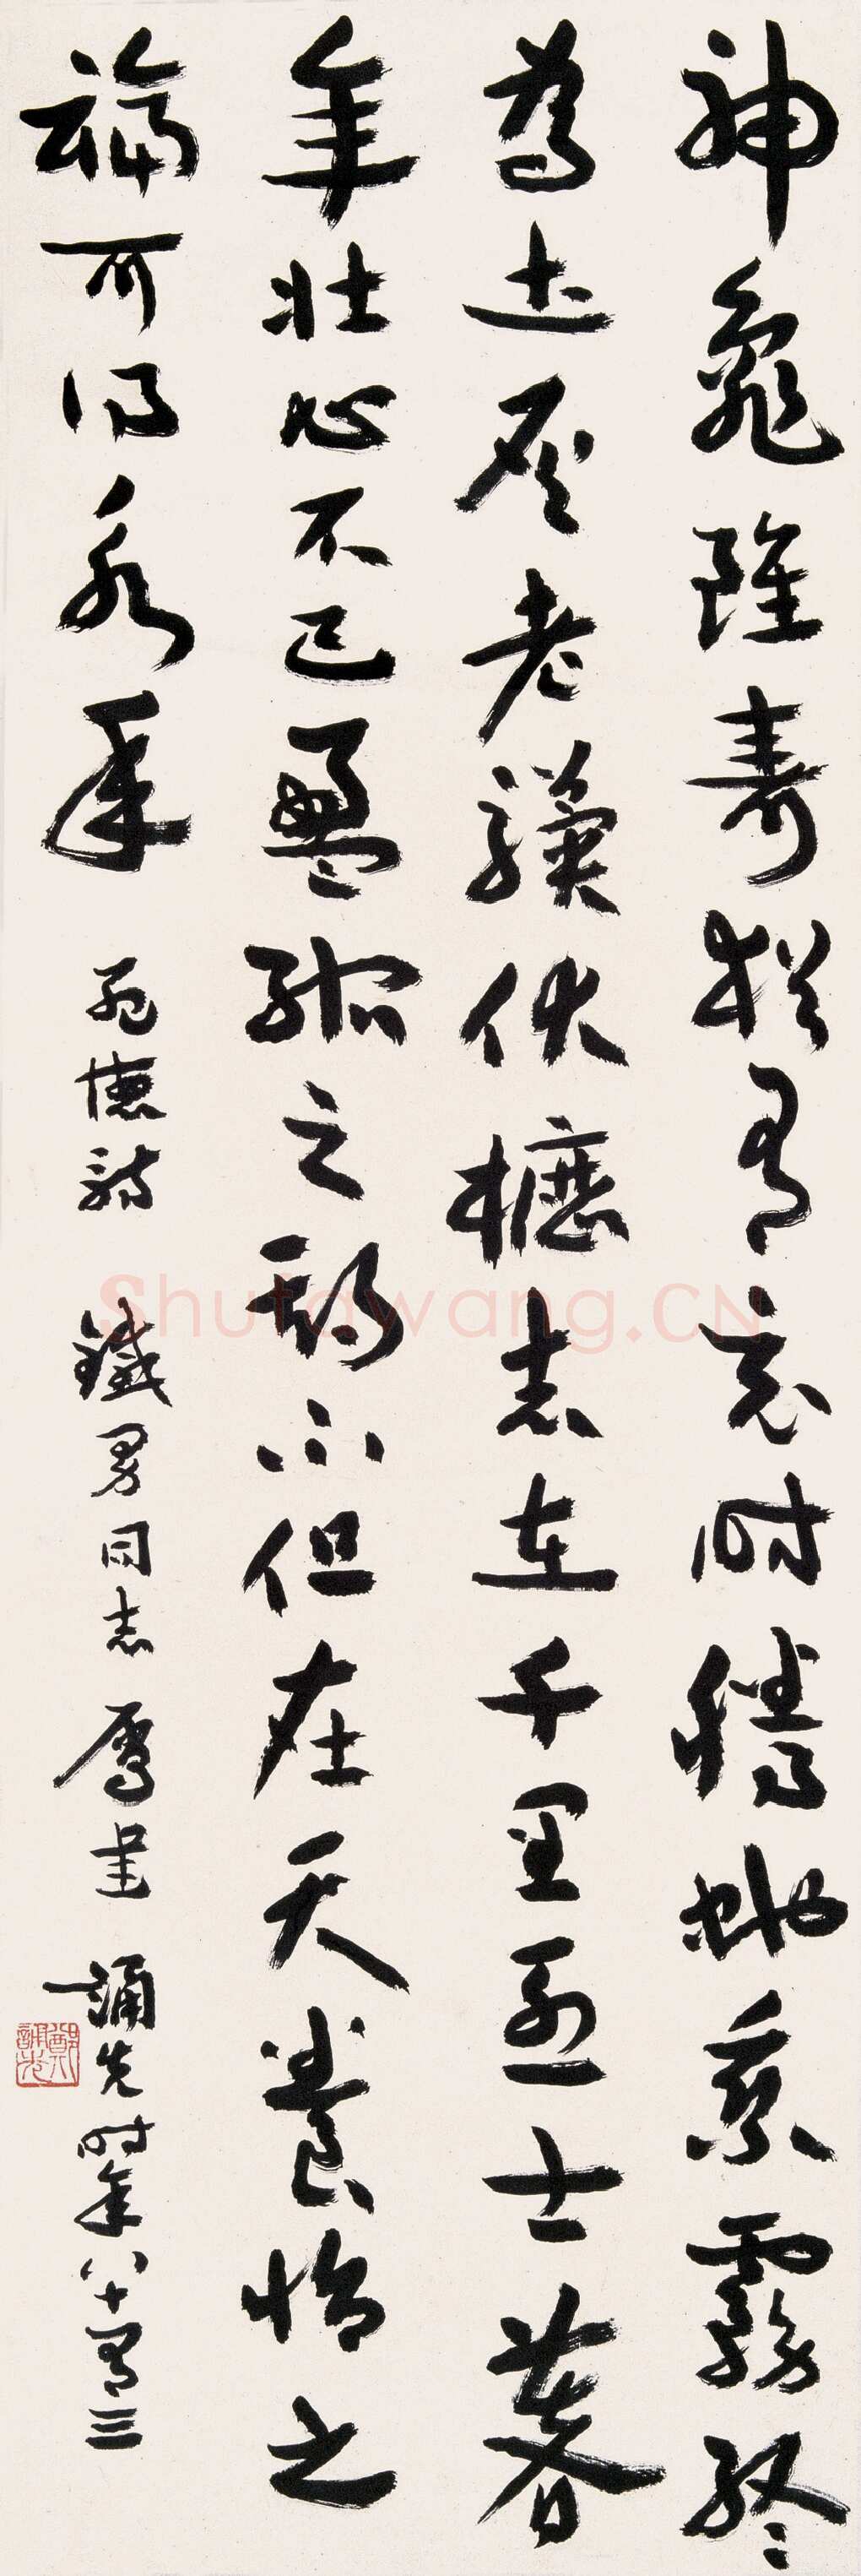 神龜雖壽猶有竟時騰蛇乘霧終
為土灰老驥伏櫪志在千里烈士暮
年壯心不已盈縮之期不但在天養怡之
福可得永年 孟德詩 鐵男同志屬書 誦先時年八十有三
鄭誦先
Shufawang.CN